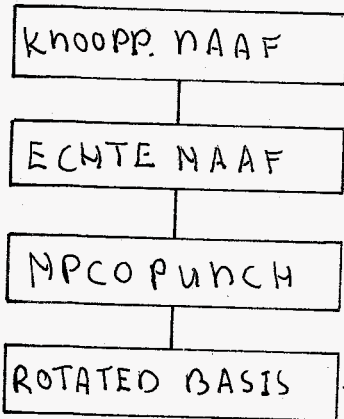 KNOOPP. NAAF
ECHTE NAAF
MPCO PUNCH
ROTATED BASIS